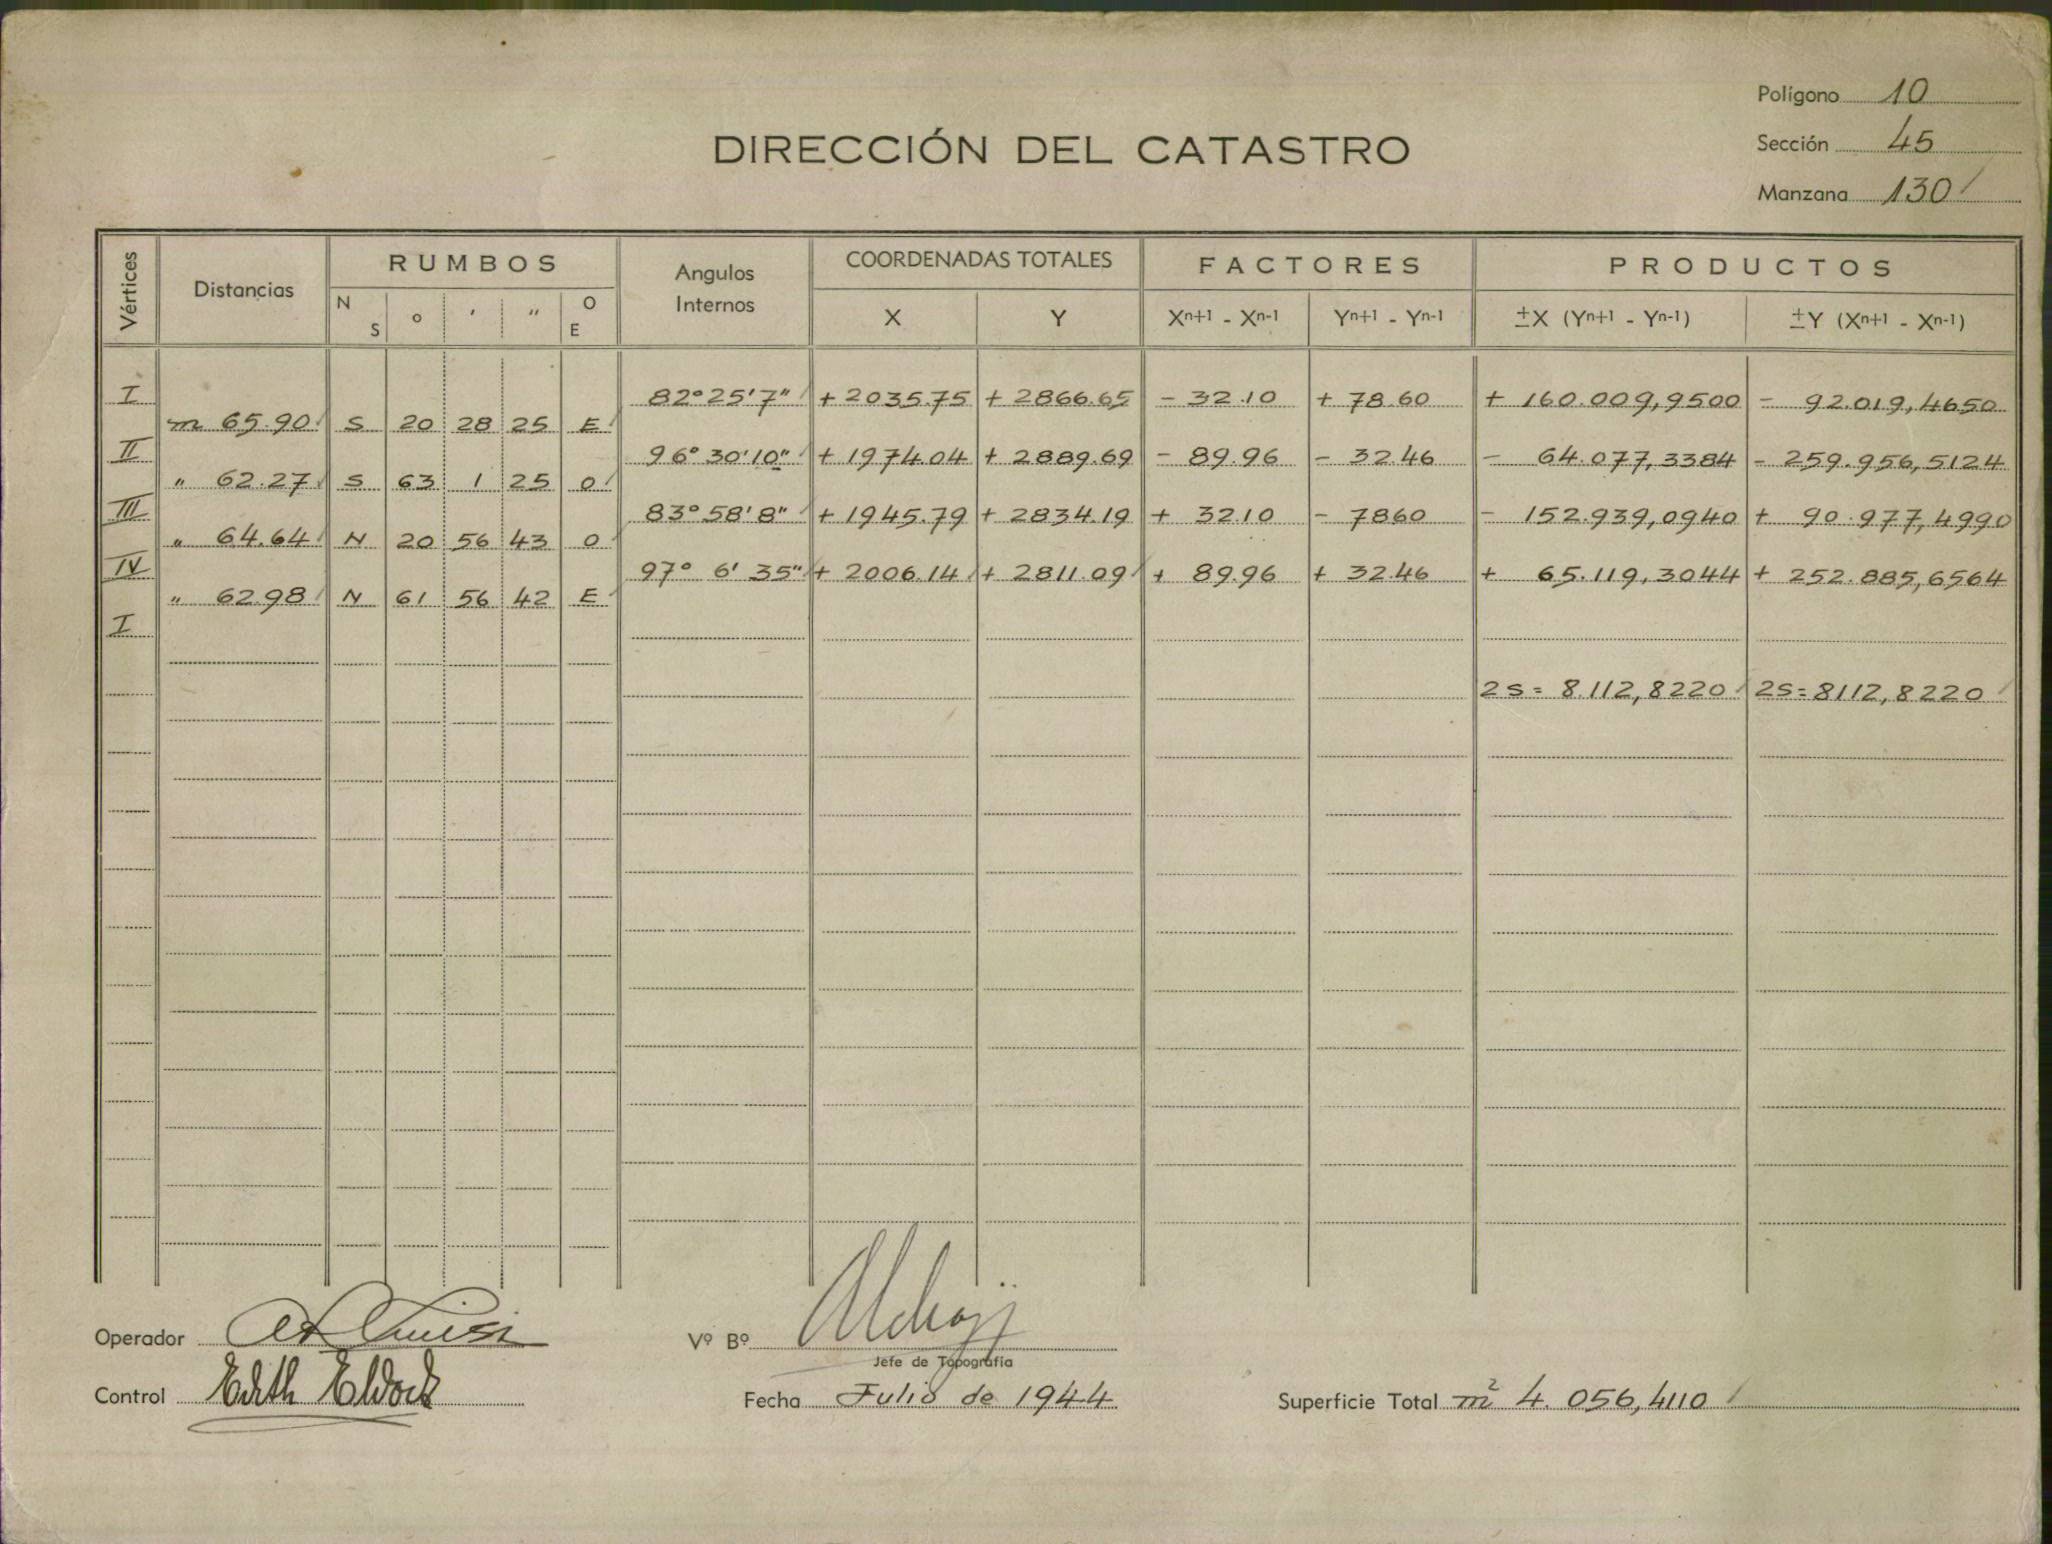 Polígono 10
DIRECCIÓN DEL CATASTRO
Sección 45
Manzana 130
Vértices Distancias RUMBOS Angulos Internos COORDENADAS TOTALES FACTORES PRODUCTOS
N S ° ' " O E X Y Xn+1 - Xn-1 Yn+1 - Yn-1 ±X (Yn+1 - Yn-1) ±Y (Xn+1 - Xn-1)
I 82°25'7" + 2035.75 + 2866.65 - 32.10 + 78.60 + 160.009,9500 - 92.019,4650
m 65.90 S 20 28 25 E
II 96°30'10" + 1974.04 + 2889.69 - 89.96 - 32.46 - 64.077,3384 - 259.956,5124
" 62.27 S 63 1 25 O
III 83°58'8" + 1945.79 + 2834.19 + 3210 - 7860 - 152.939,0940 + 90.977,4990
" 64.64 N 20 56 43 O
IV 97° 6' 35" + 2006.14 + 2811.09 + 89.96 + 32.46 + 65.119,3044 + 252.885,6564
" 62.98 N 61 56 42 E
I
2S = 8.112,8220 2S = 8112,8220
Operador
Vº Bº
Jefe de Topografía
Control Edith
Fecha Julio de 1944
Superficie Total m² 4.056,4110